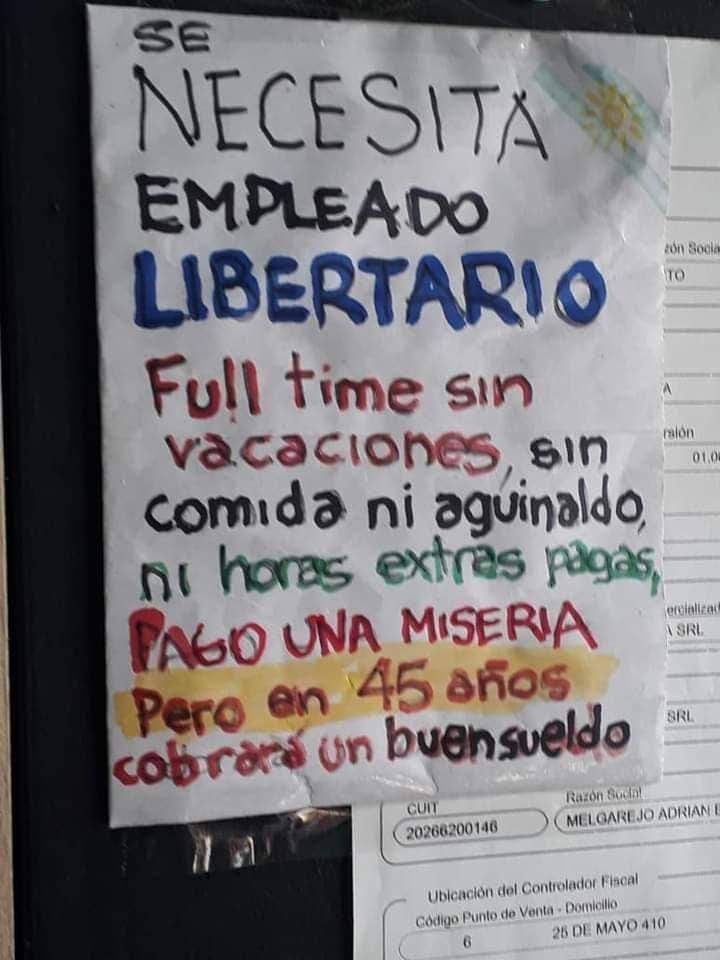 SE
NECESITA
EMPLEADO
LIBERTARIO
Full time sin
vacaciones, sin
comida ni aguinaldo,
ni horas extras pagas,
PAGO UNA MISERIA
Pero en 45 años
cobrará un buen sueldo
TO
A
01,0
SRL
SRL
CUIT
Razón Social
20266200146
MELGAREJO ADRIAN
Ubicación del Controlador Fiscal
Código Punto de Venta - Domicilio
6
25 DE MAYO 410